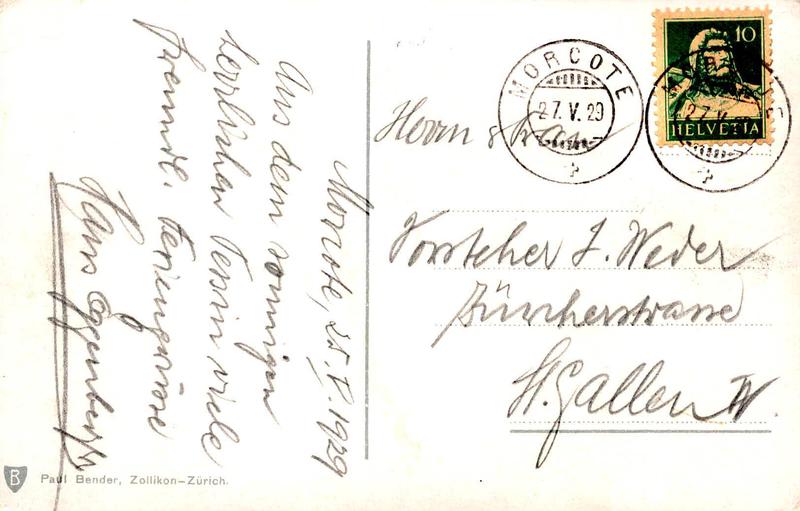 Morcote, 25. V. 1929
Aus dem sonnigen
herrlichen Tessin viele
freundl. Feriengrüsse
Hans Eggenberger
Herrn & Frau
Vorsteher J. Weder
Zürcherstrasse
St. Gallen W.
MORCOTE
27. V. 29
10
HELVETIA
27. V.
B
Paul Bender, Zollikon-Zürich.